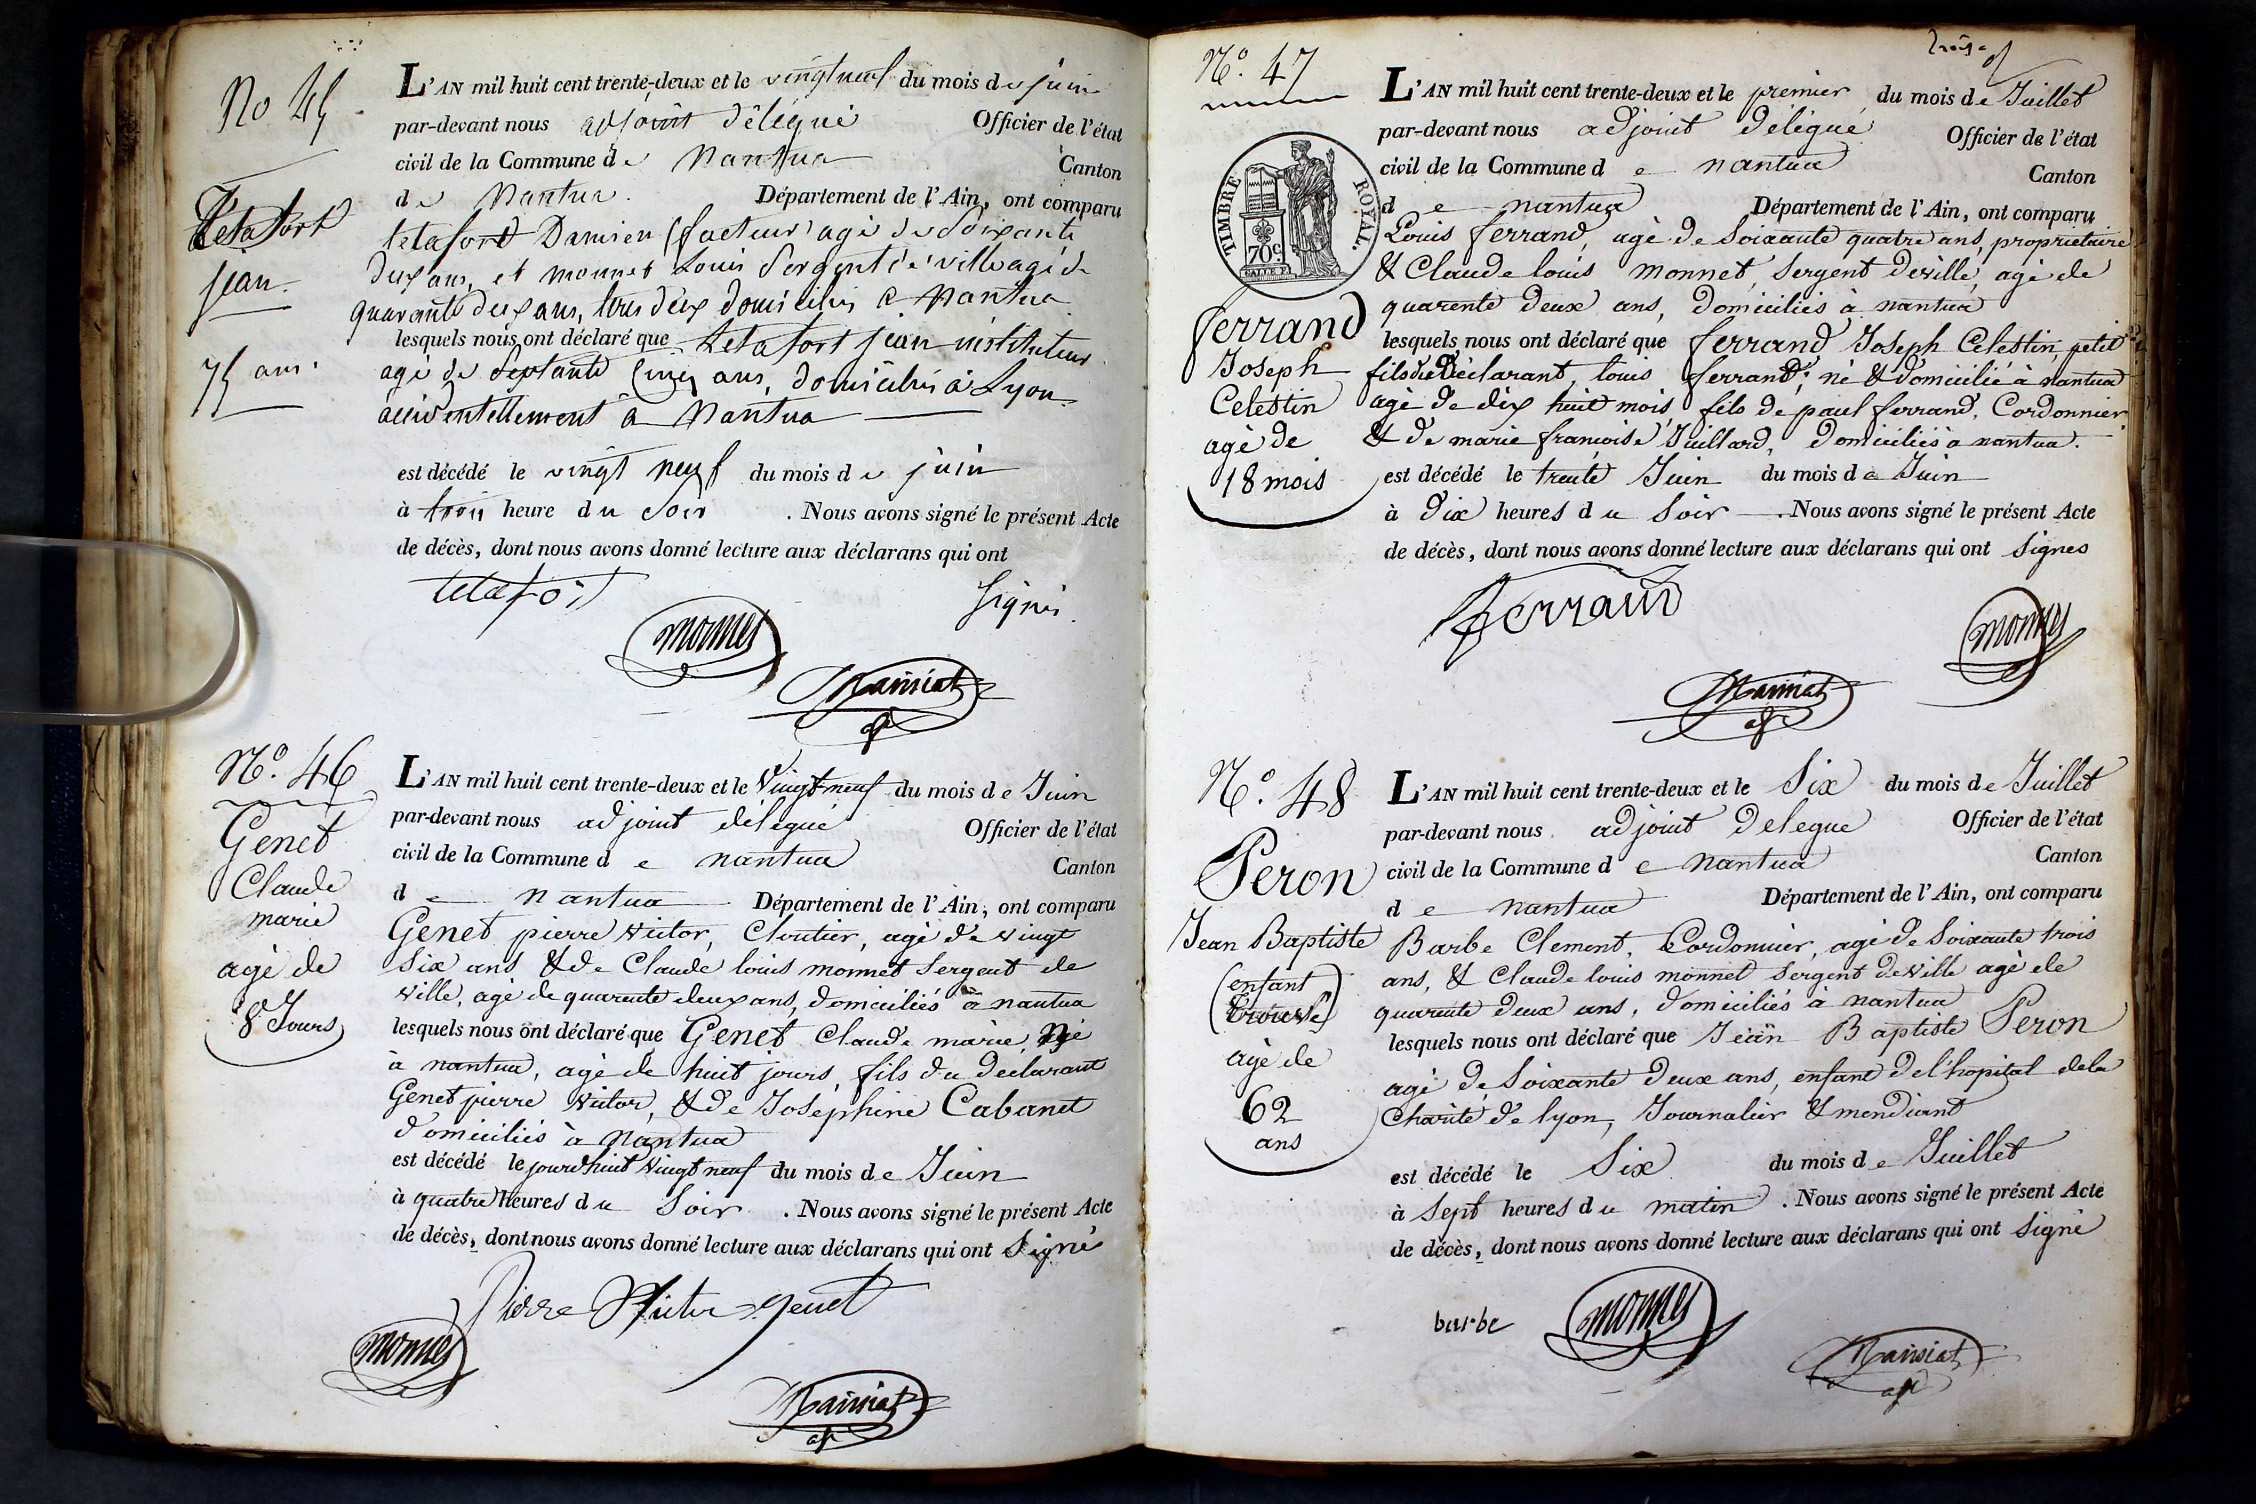 No 45
Tetafort
jean
75 ans
L'AN mil huit cent trente-deux et le vingt neuf du mois de juin
par-devant nous adjoint délégué Officier de l'état
civil de la Commune de Nantua Canton
de Nantua Département de l'Ain, ont comparu
tetafort Damien (facteur) agé de Soixante
deux ans, et monnet Louis Sergent de ville agé de
quarante deux ans, tous deux domiciliés a Nantua
lesquels nous ont déclaré que Tetafort jean instituteur
agé de Septante Cinq ans, domicilié à Lyon
accidentellement à Nantua
est décédé le vingt neuf du mois de juin
à trois heure du soir . Nous avons signé le présent Acte
de décès, dont nous avons donné lecture aux déclarans qui ont
signés
tetafort
monnet
N°. 46
Genet
Claude
marie
agé de
8 Jours
L'AN mil huit cent trente-deux et le Vingt neuf du mois de Juin
par-devant nous adjoint délégué Officier de l'état
civil de la Commune de nantua Canton
de nantua Département de l'Ain, ont comparu
Genet pierre victor, Cloutier, agé de vingt
Six ans & de Claude louis monnet Sergent de
ville, agé de quarente deux ans, domiciliés à nantua
lesquels nous ont déclaré que Genet Claude marie, né
à nantua, agé de huit jours, fils du declarant
Genet pierre victor, & de Joséphine Cabanet
domiciliés à Nantua
est décédé le jourdhuit Vingt neuf du mois de Juin
à quatre heures du Soir . Nous avons signé le présent Acte
de décès, dont nous avons donné lecture aux déclarans qui ont Signé
Pierre Victor genet
monnet
N°. 47
TIMBRE ROYAL.
70c.
ferrand
Joseph
Celestin
agé de
18 mois
L'AN mil huit cent trente-deux et le premier du mois de Juillet
par-devant nous adjoint délégué Officier de l'état
civil de la Commune de nantua Canton
de nantua Département de l'Ain, ont comparu
Louis ferrand, agé de Soixante quatre ans, proprietaire
& Claude louis monnet, Sergent de ville, agé de
quarente deux ans, domiciliés à nantua
lesquels nous ont déclaré que ferrand Joseph Celestin, petit
fils du Déclarant, louis ferrand, né & domicilié à nantua
agé de dix huit mois, fils de paul ferrand, Cordonnier
& de marie francoise Juillard, domiciliés à nantua.
est décédé le trente Juin du mois de Juin
à dix heures du Soir . Nous avons signé le présent Acte
de décès, dont nous avons donné lecture aux déclarans qui ont signes
ferrand
monnet
N°. 48
Peron
Jean Baptiste
(enfant
trouvé)
agé de
62
ans
L'AN mil huit cent trente-deux et le Six du mois de Juillet
par-devant nous adjoint délegué Officier de l'état
civil de la Commune de nantua Canton
de nantua Département de l'Ain, ont comparu
Barbe Clement, Cordonnier, agé de Soixante trois
ans, & Claude louis monnet Sergent de ville agé de
quarente deux ans, domiciliés à nantua
lesquels nous ont déclaré que Jean Baptiste Peron
agé de Soixante deux ans, enfant de l'hopital de la
Charité de lyon, Journalier & mendiant
est décédé le Six du mois de Juillet
à Sept heures du matin . Nous avons signé le présent Acte
de décès, dont nous avons donné lecture aux déclarans qui ont signé
barbe
monnet